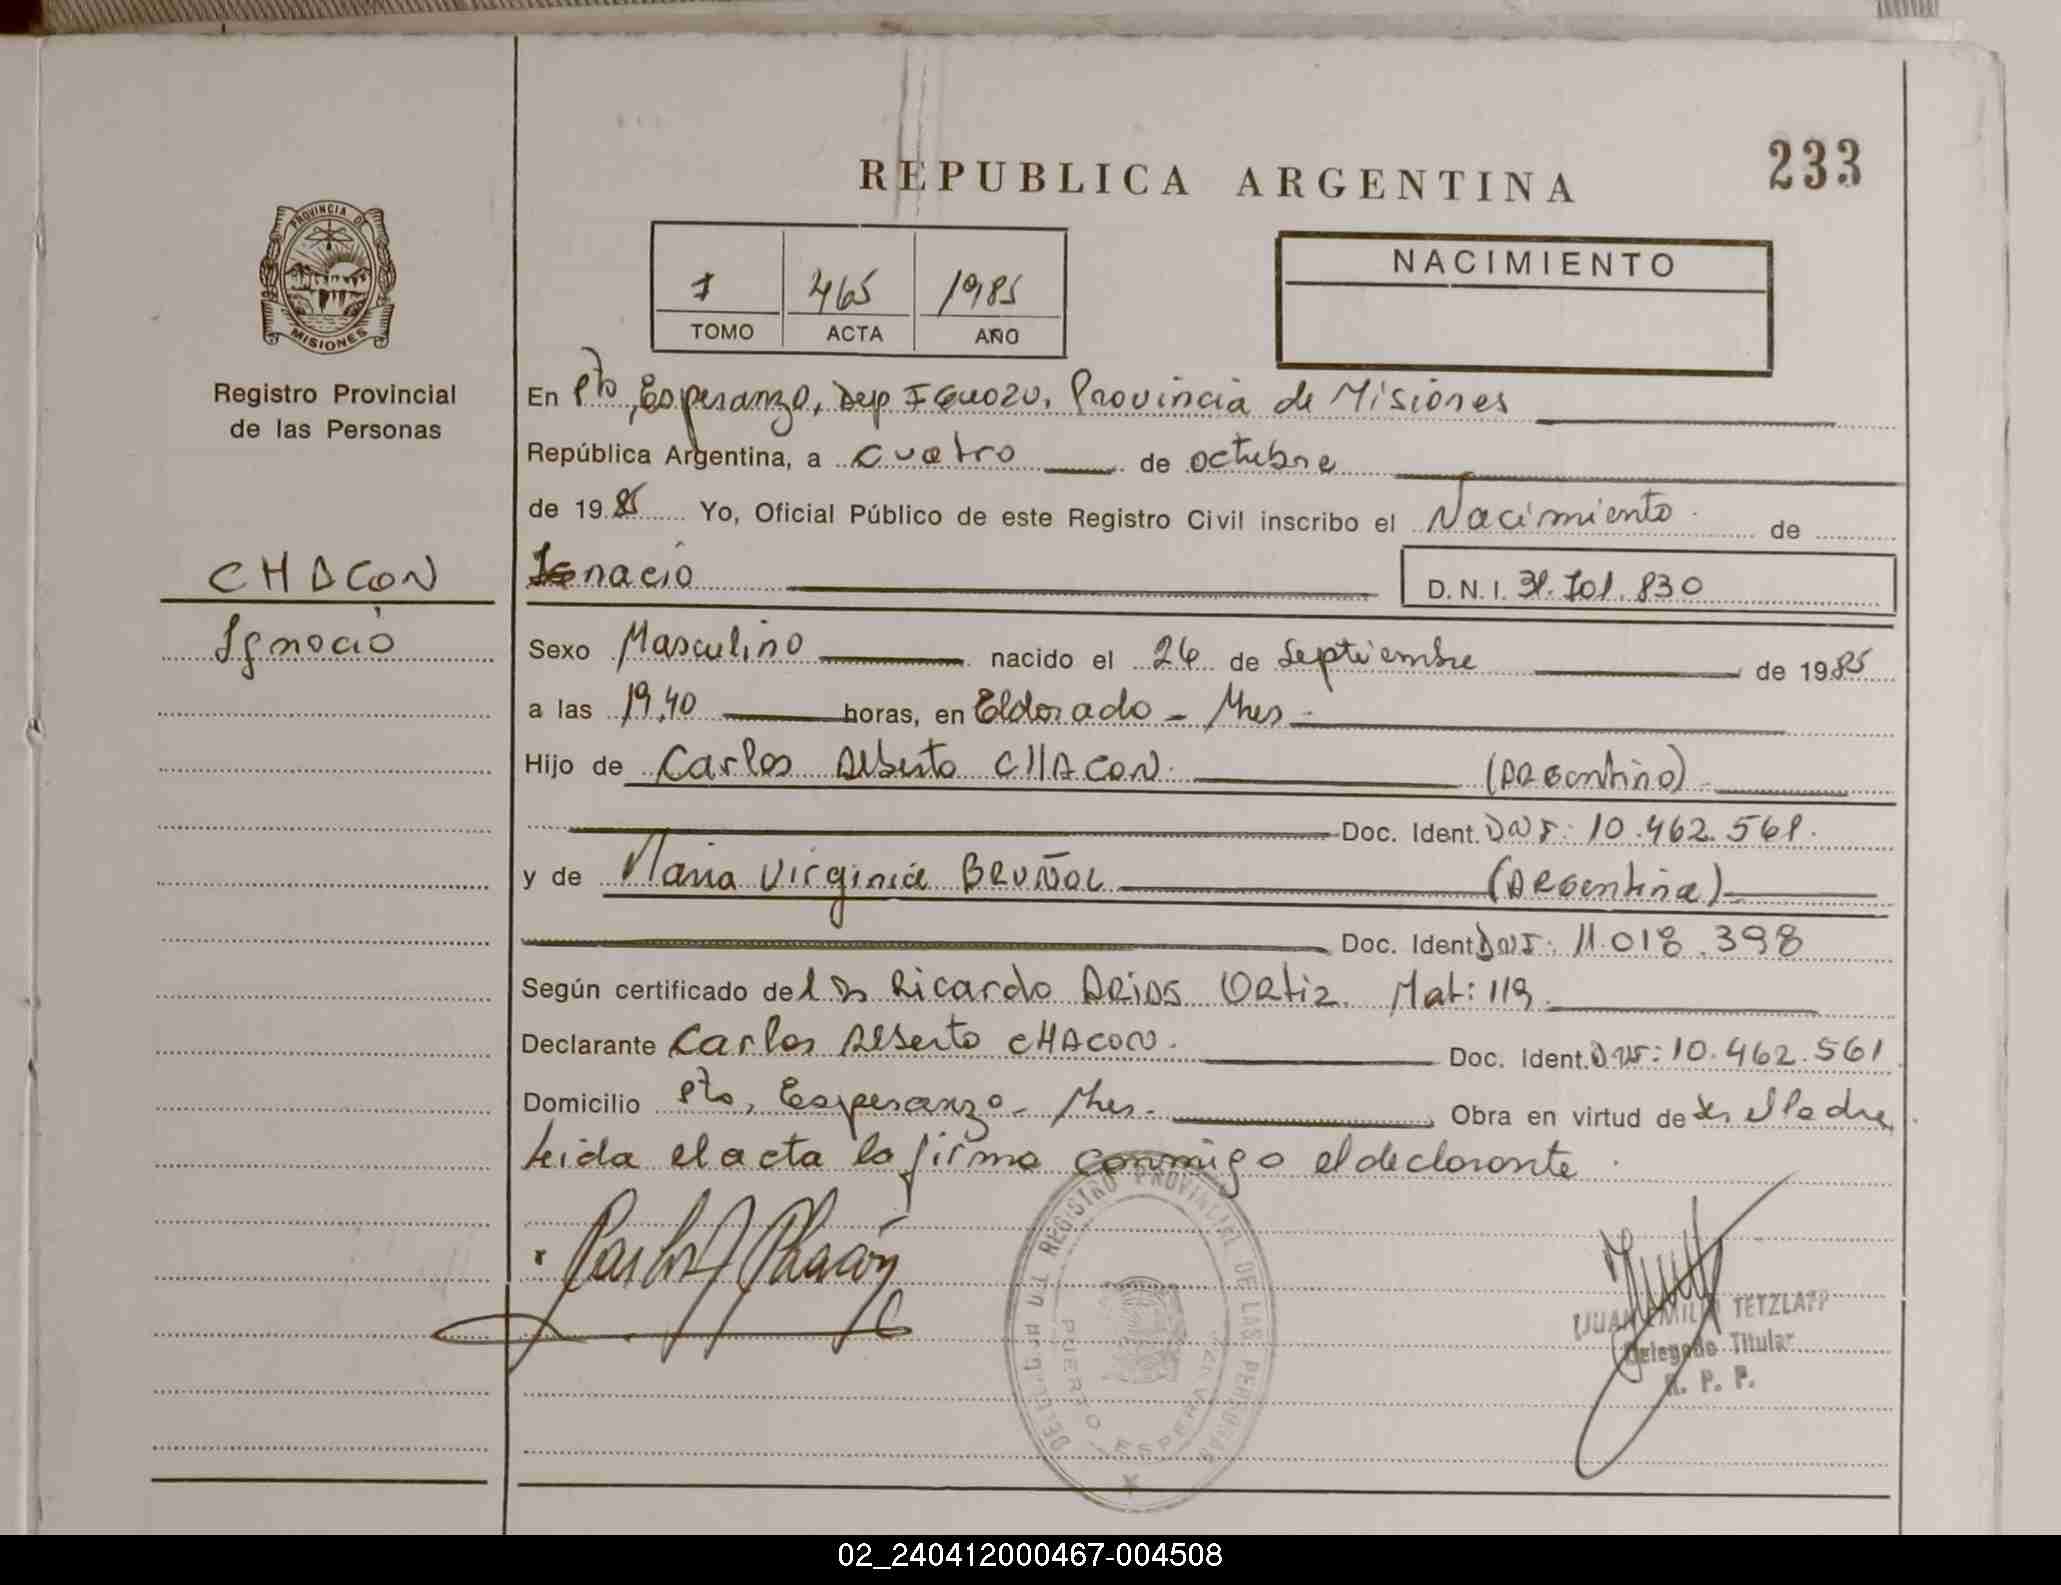 233
REPUBLICA ARGENTINA
PROVINCIA DE
MISIONES
Registro Provincial
de las Personas
CHACON
Ignacio
465 1985
TOMO ACTA AÑO
NACIMIENTO
En Pto, Esperanza, Dep Iguazu, Provincia de Misiones
República Argentina, a cuatro de octubre
de 1985 Yo, Oficial Público de este Registro Civil inscribo el Nacimiento de
Ignacio D.N.I. 31.101.830
Sexo Masculino nacido el 26 de Septiembre de 1985
a las 19,40 horas, en Eldorado - Mnes -
Hijo de Carlos Alberto CHACON (Argentino)
Doc. Ident. DNI: 10.462.561.
y de Maria Virginia BRUÑOL (Argentina)
Doc. Ident DNI: 11.018.398
Según certificado del Dr Ricardo Arias Ortiz. Mat: 119
Declarante Carlos Alberto CHACON. Doc. Ident. DNI: 10.462.561
Domicilio Pto, Esperanza - Mnes. Obra en virtud de ser el Padre
Leida el acta la firma conmigo el declarante.
Carlos A Chacón
DELEG.CIA DEL REGISTRO PROVINCIAL DE LAS PERSONAS
PUERTO ESPERANZA
JUAN EMILIO TETZLAFF
Delegado Titular
R. P. P.
02_240412000467-004508